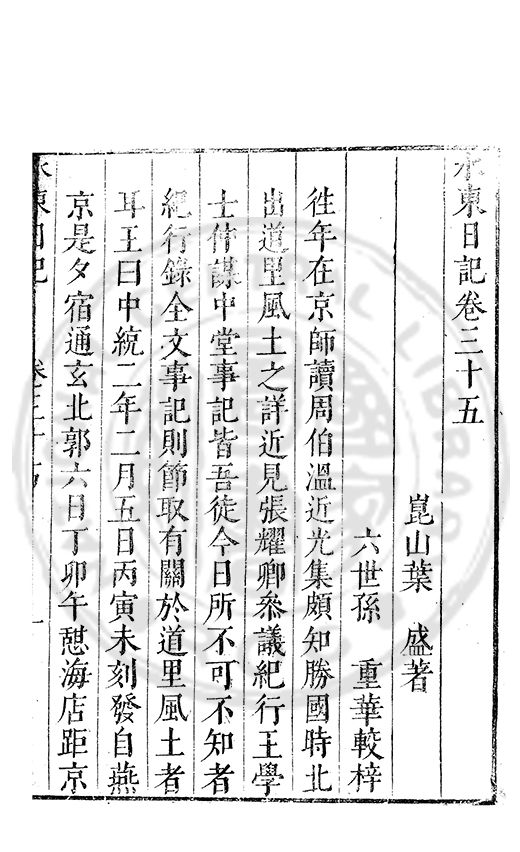 水東日記卷三十五
崑山葉　盛著
六世孫　重華較梓
徃年在京師讀周伯溫近光集頗知勝國時北
出道里風土之詳近見張耀卿叅議紀行王學
士仲謀中堂事記皆吾徒今日所不可不知者
紀行錄全文事記則節取有關於道里風土者
耳王曰中統二年二月五日丙寅未刻發自燕
京是夕宿通玄北郭六日丁卯午憇海店距京
水東日記　卷三十五　一